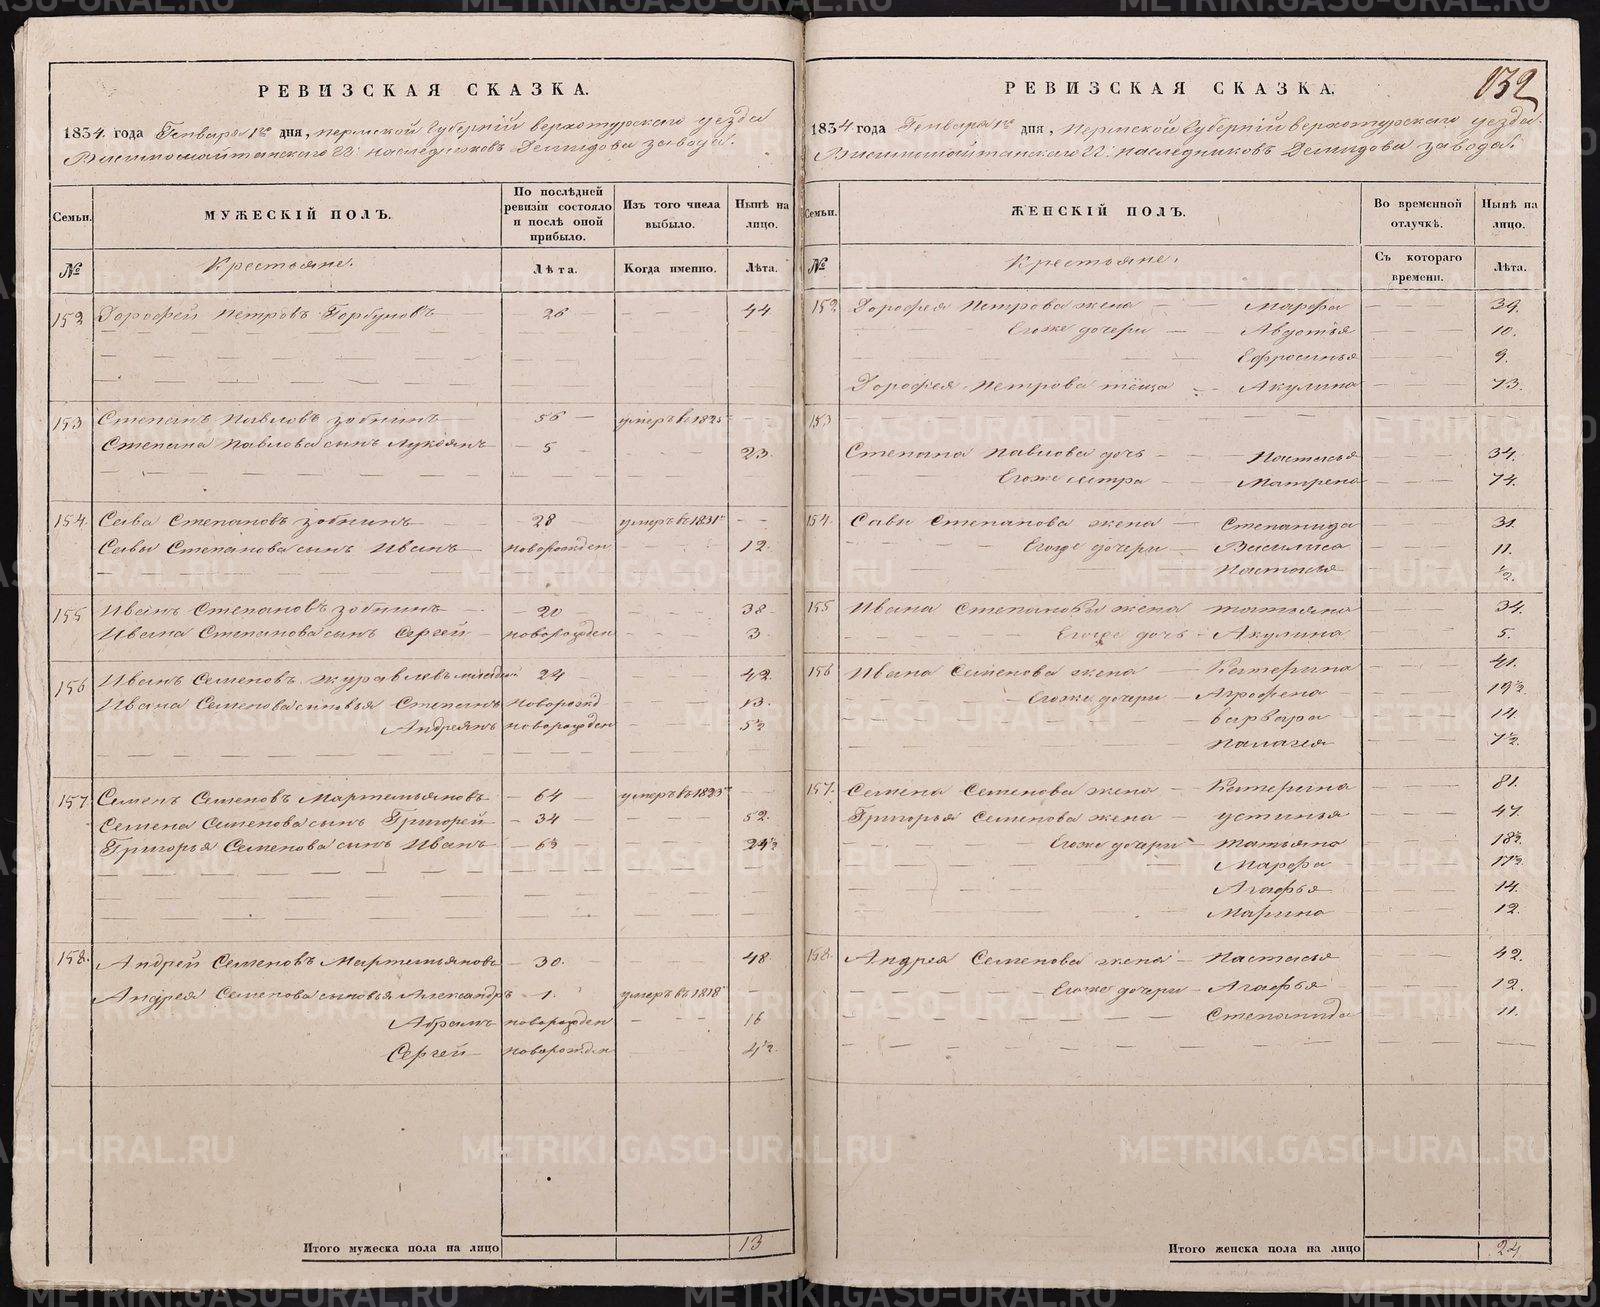 РЕВИЗСКАЯ СКАЗКА.
1834. года Генваря 1го дня, пермской Губерніи верхотурскаго уезда
Висимошайтанскаго Гг: наследниковъ Демидова завода.
Семьи.
МУЖЕСКІЙ ПОЛЪ.
По послѣдней ревизіи состояло и послѣ оной прибыло.
Изъ того числа выбыло.
Нынѣ на лицо.
№
Крестьяне.
Лѣта.
Когда именно.
Лѣта.
152 Дорофей Петровъ Горбуновъ 26 — — 44
153 Степанъ Павловъ зобнинъ 56 — умеръ въ 1825
Степана Павлова сынъ Лукоянъ 5 — — 23.
154. Сава Степановъ зобнинъ — 28 умеръ въ 1831 — —
Савы Степанова сынъ Иванъ — новорожден — — 12.
155 Иванъ Степановъ зобнинъ — 20 — — — 38
Ивана Степанова сынъ Сергей — новорожден — — 3
156 Иванъ Семеновъ журавлевъ 24 — — — 42.
Ивана Семенова сыновья Степанъ новорожд — — 13.
Андреянъ новорожден — — 5½
157 Семенъ Семеновъ Мартемьяновъ — 64 — умеръ въ 1825 — —
Семена Семенова сынъ Григорей — 34 — — — 52.
Григорья Семенова сынъ Иванъ — 6½ — — — 24½
158. Андрей Семеновъ Мартемьяновъ — 30. — — — 48.
Андрея Семенова сыновья Александръ — 1. умеръ въ 1818 —
Абрамъ новорожден — — 16
Сергей — новорожден — — 4½.
Итого мужеска пола на лицо 13
РЕВИЗСКАЯ СКАЗКА.
132
1834 года Генваря 1го дня, Пермской Губерніи верхотурскаго уезда.
Висимошайтанскаго Гг: наследниковъ Демидова завода.
Семьи.
ЖЕНСКІЙ ПОЛЪ.
Во временной отлучкѣ.
Нынѣ на лицо.
№
Крестьяне.
Съ котораго времени.
Лѣта.
152 Дорофея Петрова жена — — Марфа — — 39.
Егоже дочери — Авдотья — — 10.
Ефросинья — — 9.
Дорофея Петрова тёща — Акулина — — 73.
153
Степана Павлова дочь — — Настасья — — 34.
Егоже сестра — Матрена — — 74.
154. Савы Степанова жена — Степанида — — 31.
Егоже дочери — Василиса — — 11.
Настасья — — ½.
155 Ивана Степанова жена татьяна — — 34.
Егоже дочь — Акулина — — 5.
156 Ивана Семенова жена — Катерина — — 41.
Егоже дочери — Аграфена — — 19½.
варвара — — 14.
палагея — — 7½.
157. Семена Семенова жена — Катерина — — 81.
Григорья Семенова жена — устинья — — 47.
Егоже дочери татьяна — — 18½.
Марфа — — 17½.
Агафья — — 14.
Марина — — 12.
158. Андрея Семенова жена — настасья — — 42.
Егоже дочери — Агафья — — 12.
Степанида — — 11.
Итого женска пола на лицо 24
METRIKI.GASO-URAL.RU